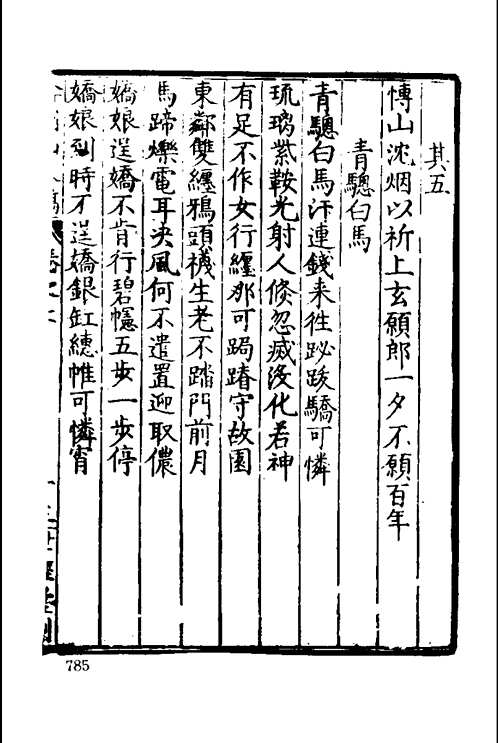 其五
愽山沈烟以祈上玄願郎一夕不願百年
青驄白馬
青驄白馬汗連錢来徃跁跋驕可憐
琉璃紫鞍光射人倐忽滅沒化若神
有足不作女行纏那可跼蹐守故園
東鄰雙纏鴉頭襪生老不踏門前月
馬蹄爍電耳決風何不遣置迎取儂
嬌娘逞嬌不肯行碧幰五步一步停
嬌娘到時不逞嬌銀缸繐帷可憐宵
785